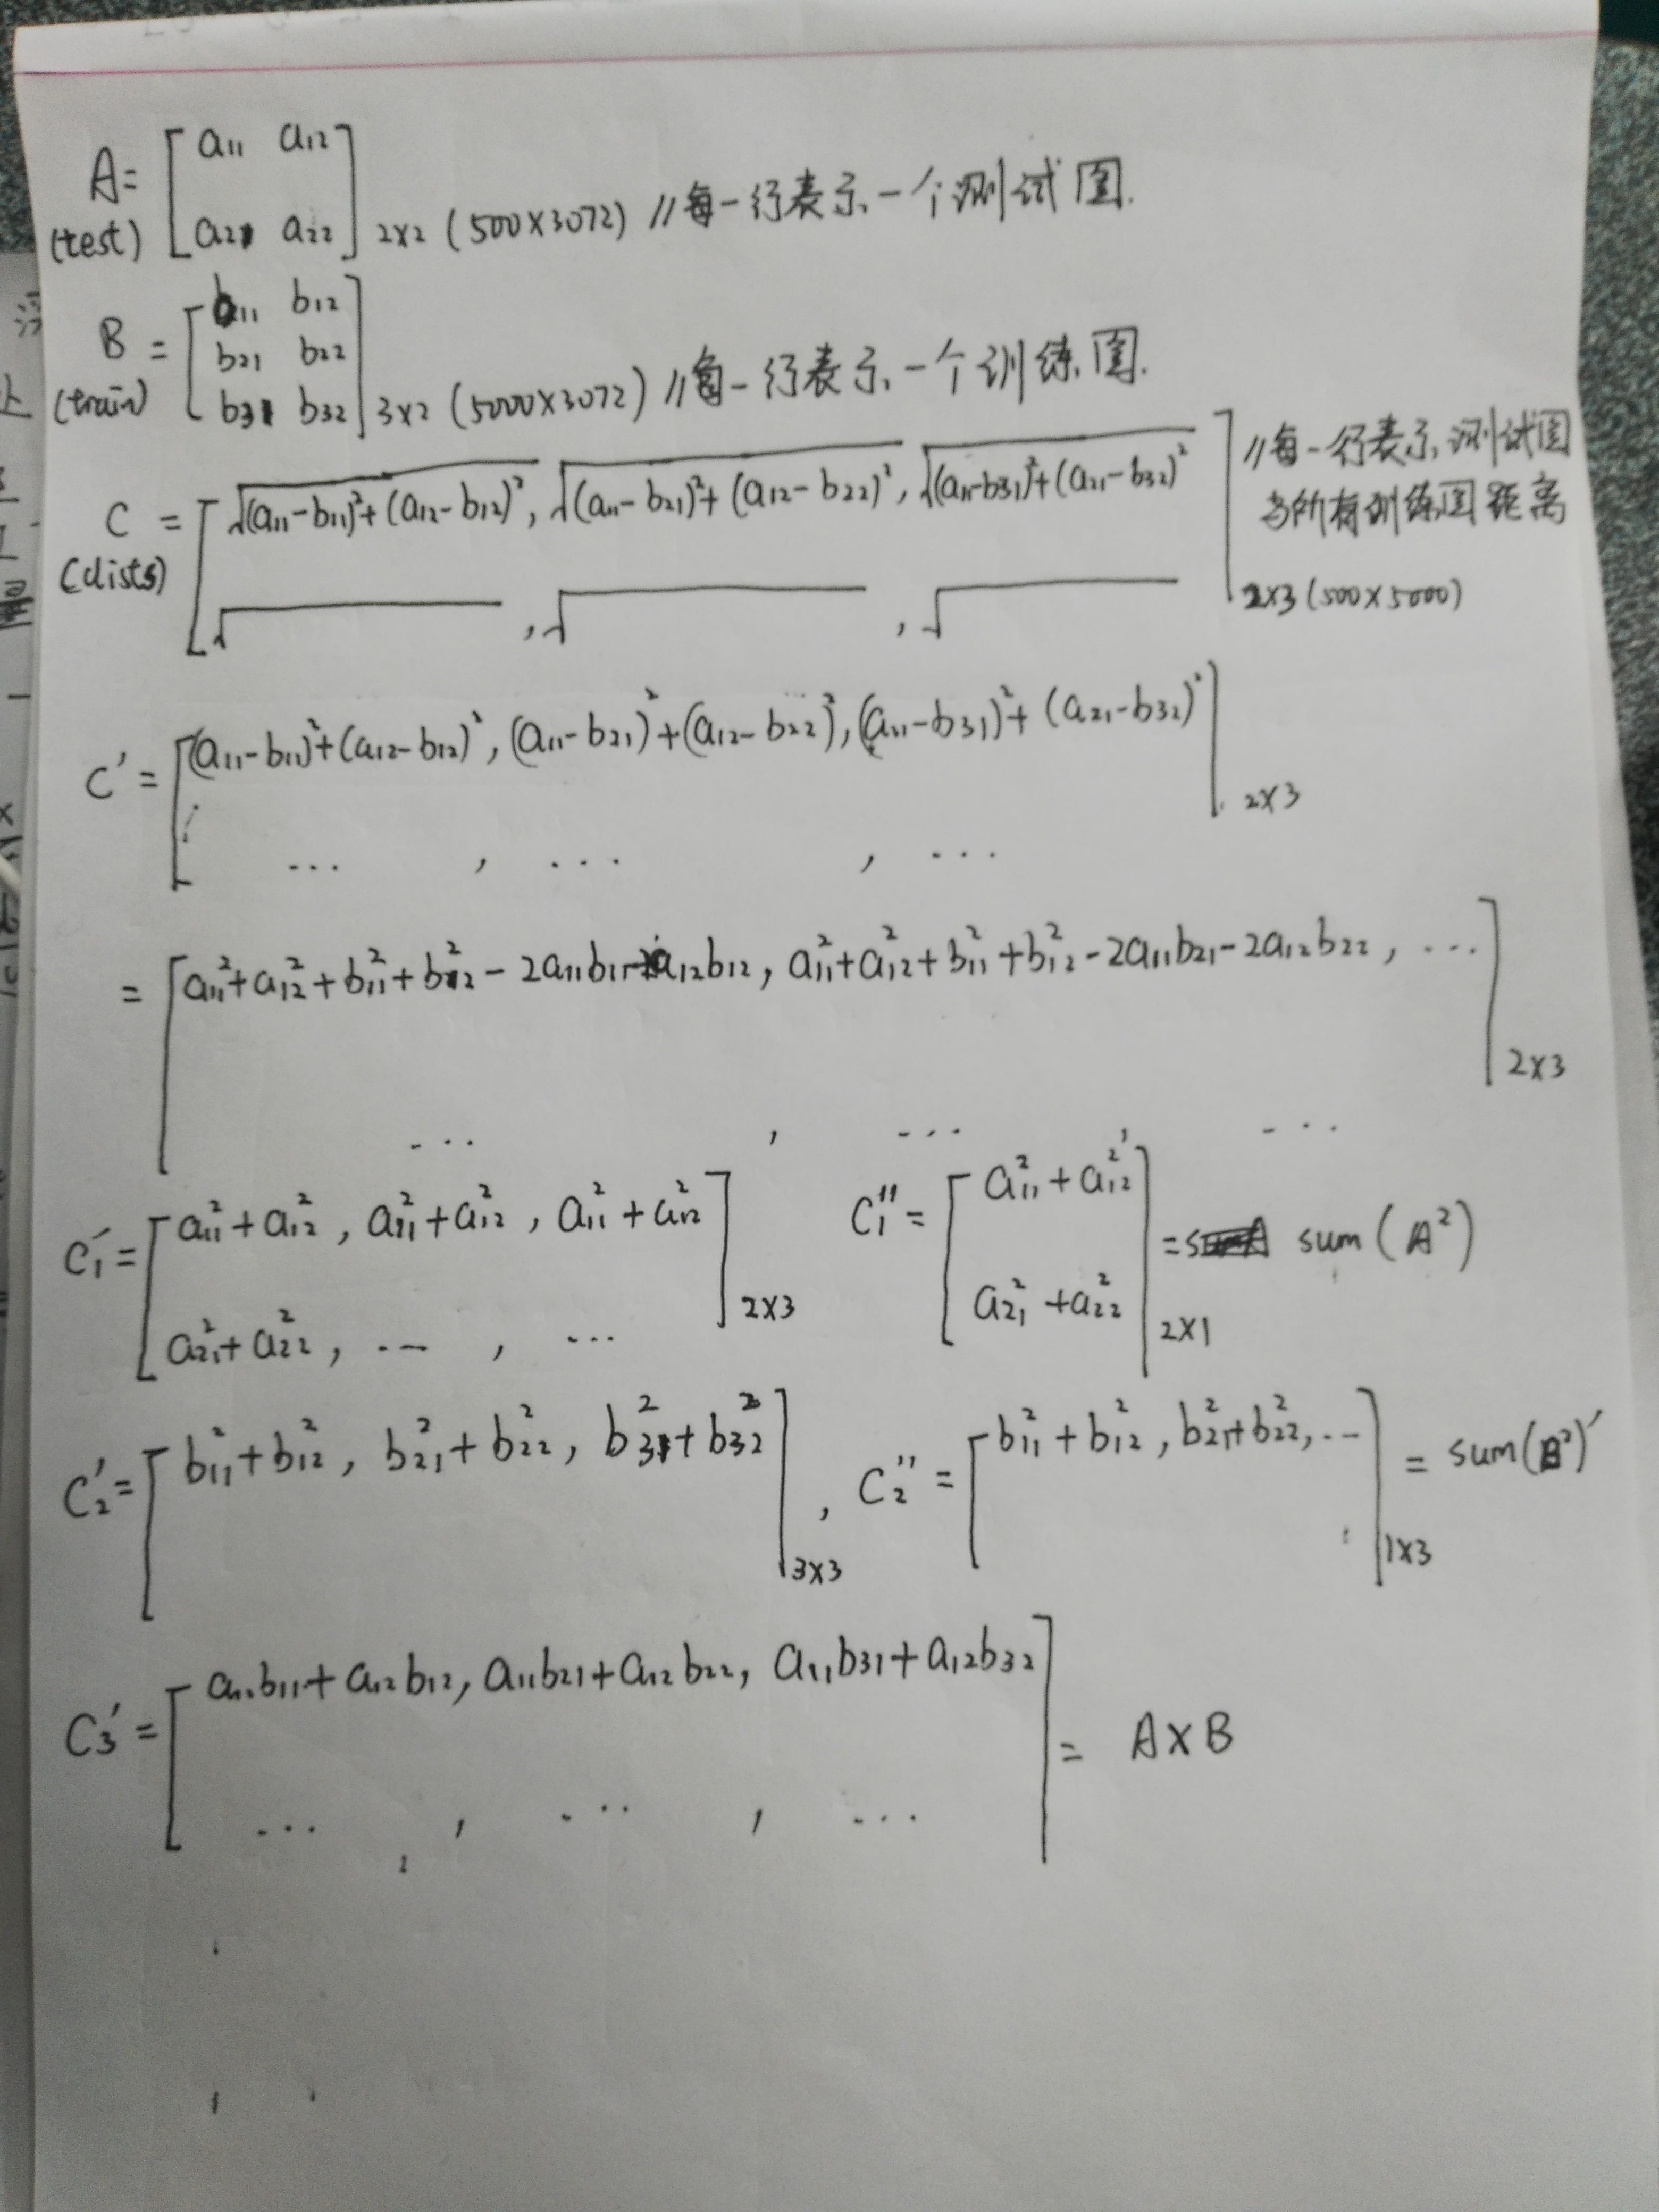 A = [ a11 a12
(test) a21 a22 ] 2×2 (500×3072) //每一行表示一个测试图.
B = [ b11 b12
b21 b22
(train) b31 b32 ] 3×2 (5000×3072) //每一行表示一个训练图.
C = [ √(a11-b11)²+(a12-b12)², √(a11-b21)²+(a12-b22)², √(a11-b31)²+(a21-b32)² ] //每一行表示测试图
与所有训练图距离
(dists) √ , √ , √ 2×3 (500×5000)
C' = [ (a11-b11)²+(a12-b12)², (a11-b21)²+(a12-b22)², (a11-b31)²+(a21-b32)² ] 2×3
... , ... , ...
= [ a11²+a12²+b11²+b12²-2a11b11-2a12b12, a11²+a12²+b11²+b12²-2a11b21-2a12b22, ... ] 2×3
... , ... , ...
C1' = [ a11²+a12², a11²+a12², a11²+a12² C1'' = [ a11²+a12²
a21²+a22², ... , ... ] 2×3 a21²+a22² ] 2×1 = sum(A²)
C2' = [ b11²+b12², b21²+b22², b31²+b32² ] 3×3 , C2'' = [ b11²+b12², b21²+b22², ... ] 1×3 = sum(B²)'
C3' = [ a11b11+a12b12, a11b21+a12b22, a11b31+a12b32 ] = A×B
... , ... , ...